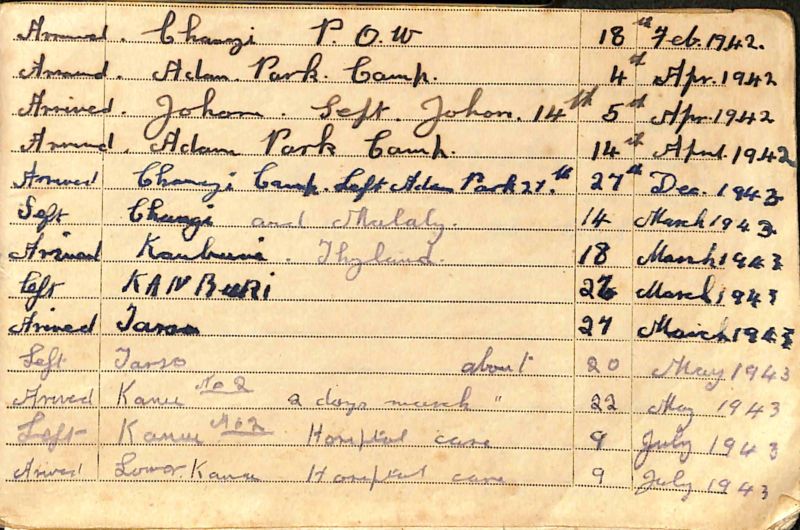 Arrived. Changi P.O.W 18th Feb. 1942.
Arrived. Adam Park Camp. 4th Apr. 1942
Arrived. Johore. Left. Johore. 14th 5th Apr. 1942
Arrived. Adam Park Camp. 14th April 1942
Arrived Changi Camp. Left Adam Park 27.th 27th Dec. 1943
Left Changi and Malaly. 14 March 1943.
Arrived Kanburie. Thyland. 18 March 1943
Left KANBURI 26 March 1943
Arrived Tarso 27 March 1943
Left Tarso about 20 May 1943
Arrived Kanu No 2 2 days march " 22 May 1943
Left Kanu No 2 Hospital case 9 July 1943
Arrived Lower. Kanu Hospital case 9 July 1943